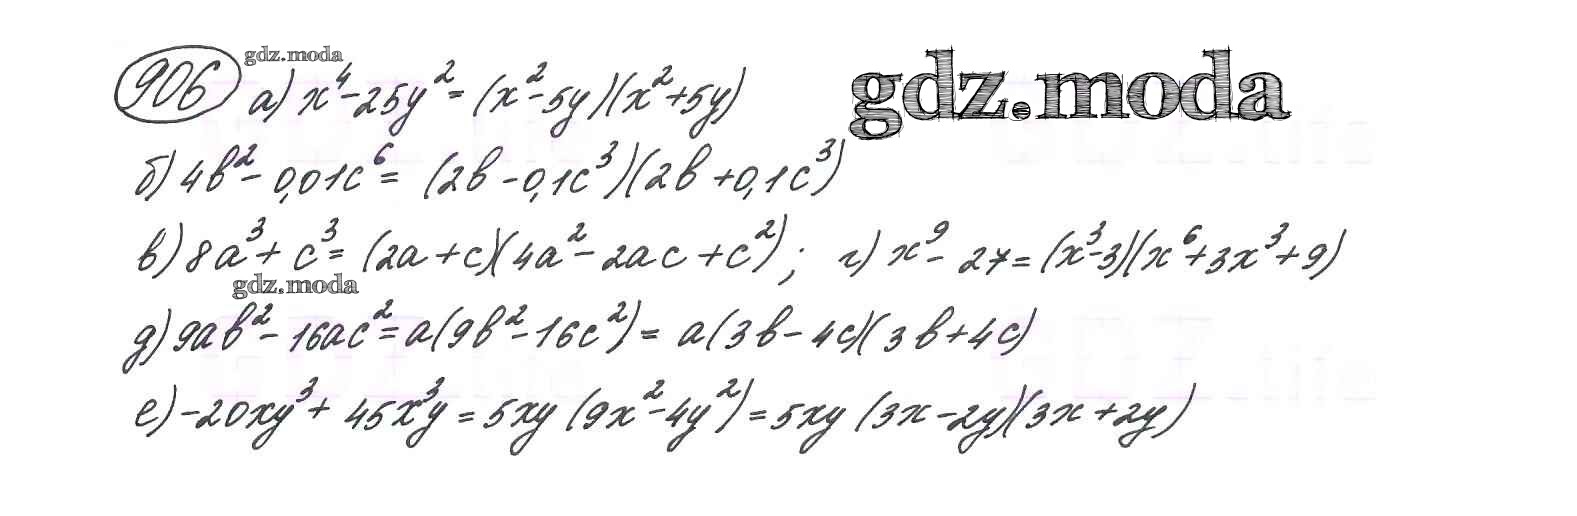 gdz.moda
906 а) x⁴-25y² = (x²-5y)(x²+5y) gdz.moda
б) 4b²-0,01c⁶ = (2b-0,1c³)(2b+0,1c³)
в) 8a³+c³ = (2a+c)(4a²-2ac+c²); г) x⁹-27=(x³-3)(x⁶+3x³+9)
gdz.moda
д) 9ab²-16ac² = a(9b²-16c²) = a(3b-4c)(3b+4c)
е) -20xy³+45x³y = 5xy(9x²-4y²) = 5xy(3x-2y)(3x+2y)